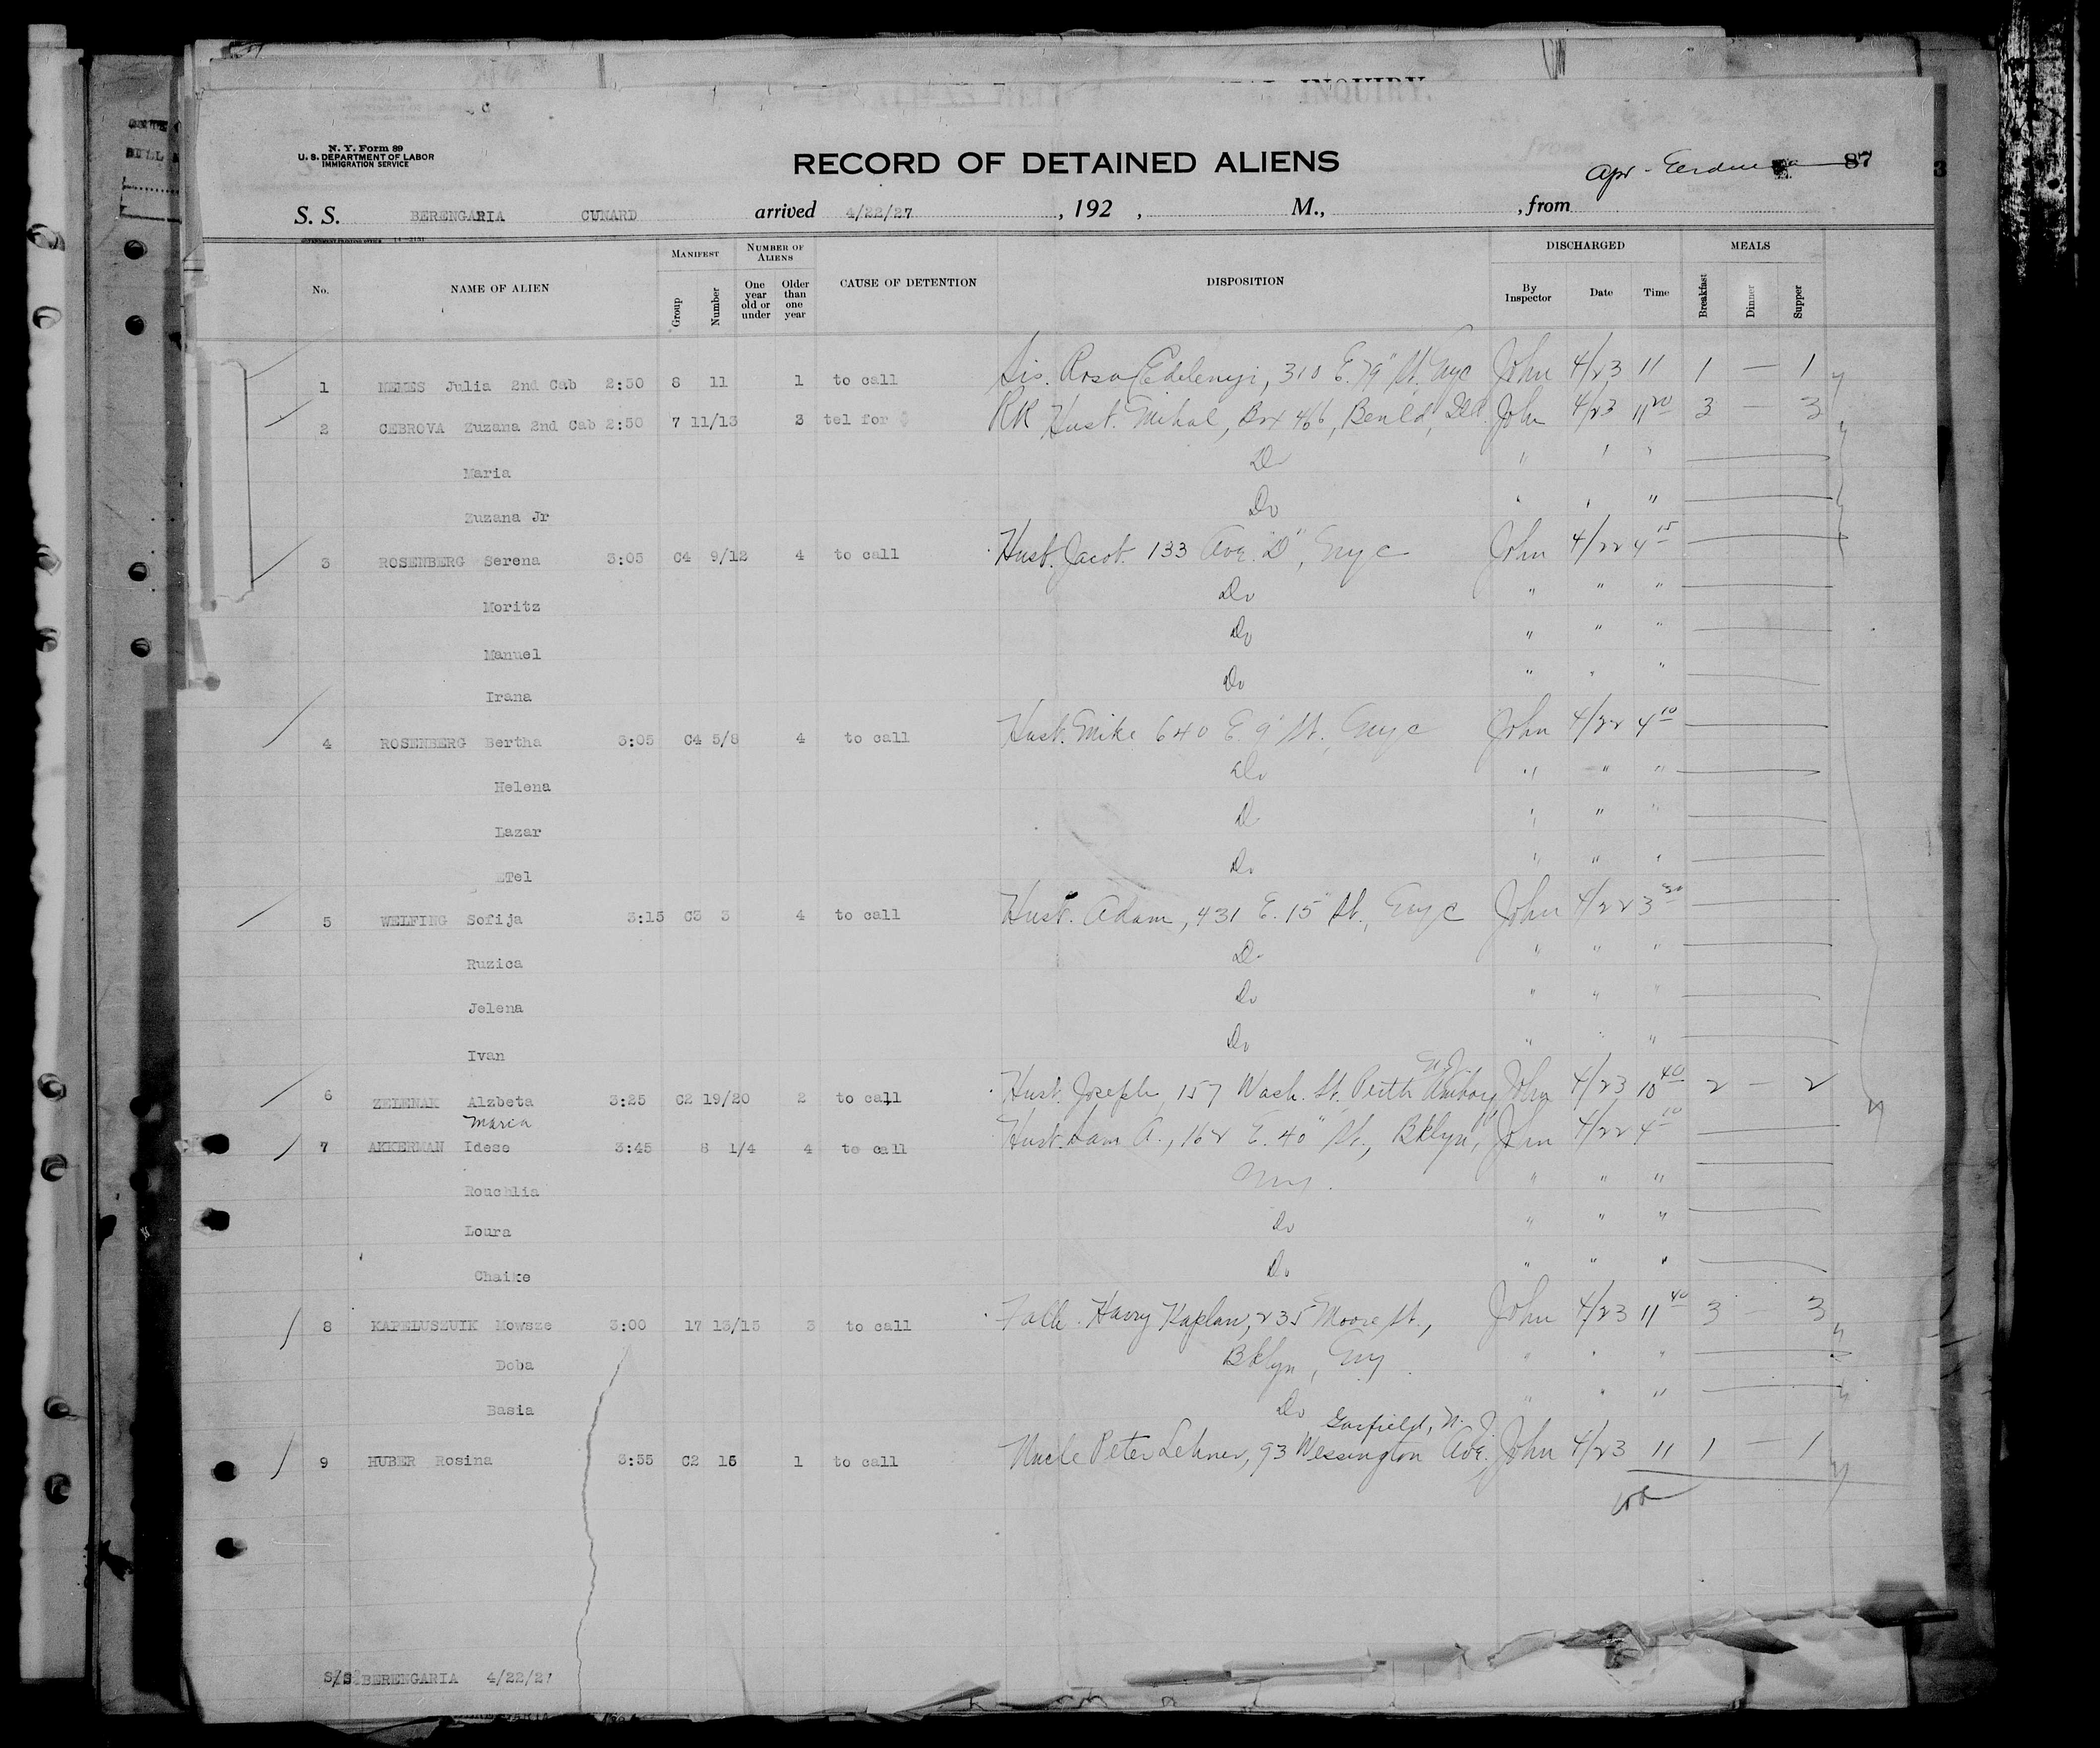 INQUIRY.
N. Y. Form 89
U. S. DEPARTMENT OF LABOR
IMMIGRATION SERVICE
RECORD OF DETAINED ALIENS
Apr - 87
3
S. S. BERENGARIA CUNARD arrived 4/22/27 , 192 , M., , from
No. NAME OF ALIEN MANIFEST Group Number NUMBER OF ALIENS One year old or under Older than one year CAUSE OF DETENTION DISPOSITION DISCHARGED By Inspector Date Time MEALS Breakfast Dinner Supper
1 NEMES Julia 2nd Cab 2:50 8 11 1 to call Sis. Rosa Edelenyi, 310 E. 79" St. Nyc John 4/23 11 1 — 1
2 CEBROVA Zuzana 2nd Cab 2:50 7 11/13 3 tel for RR Husb. Mihal, Box 466, Benld, Ill. John 4/23 11 20 3 — 3
Maria Do " " "
Zuzana Jr Do " " "
3 ROSENBERG Serena 3:05 C4 9/12 4 to call Husb. Jacob. 133 Ave. "D", Nyc John 4/22 4 15
Moritz Do " " "
Manuel Do " " "
Irana Do " " "
4 ROSENBERG Bertha 3:05 C4 5/8 4 to call Husb. Mike 640 E. 9" St., Nyc John 4/22 4 10
Helena Do " " "
Lazar Do " " "
ETel Do " " "
5 WELFING Sofija 3:15 C3 3 4 to call Husb. Adam, 431 E. 15" St., Nyc John 4/22 3 30
Ruzica Do " " "
Jelena Do " " "
Ivan Do " " "
6 ZELENAK Alzbeta 3:25 C2 19/20 2 to call Husb. Joseph, 157 Wash. St. Perth Amboy N.J. John 4/23 10 40 2 — 2
Maria
7 AKKERMAN Idese 3:45 8 1/4 4 to call Husb. Sam A., 162 E. 40" St., Bklyn, John 4/22 4 10
Rouchlia Ny. " " "
Loura Do " " "
Chaike Do " " "
8 KAPELUSZUIK Mowsze 3:00 17 13/15 3 to call Fath. Harry Kaplan, 235 Moore St., John 4/23 11 40 3 — 3
Doba Bklyn, Ny " " "
Basia Do " " "
Garfield, N. J.
9 HUBER Rosina 3:55 C2 15 1 to call Uncle Peter Lehner, 93 Wessington Ave. John 4/23 11 1 — 1
S/S BERENGARIA 4/22/27